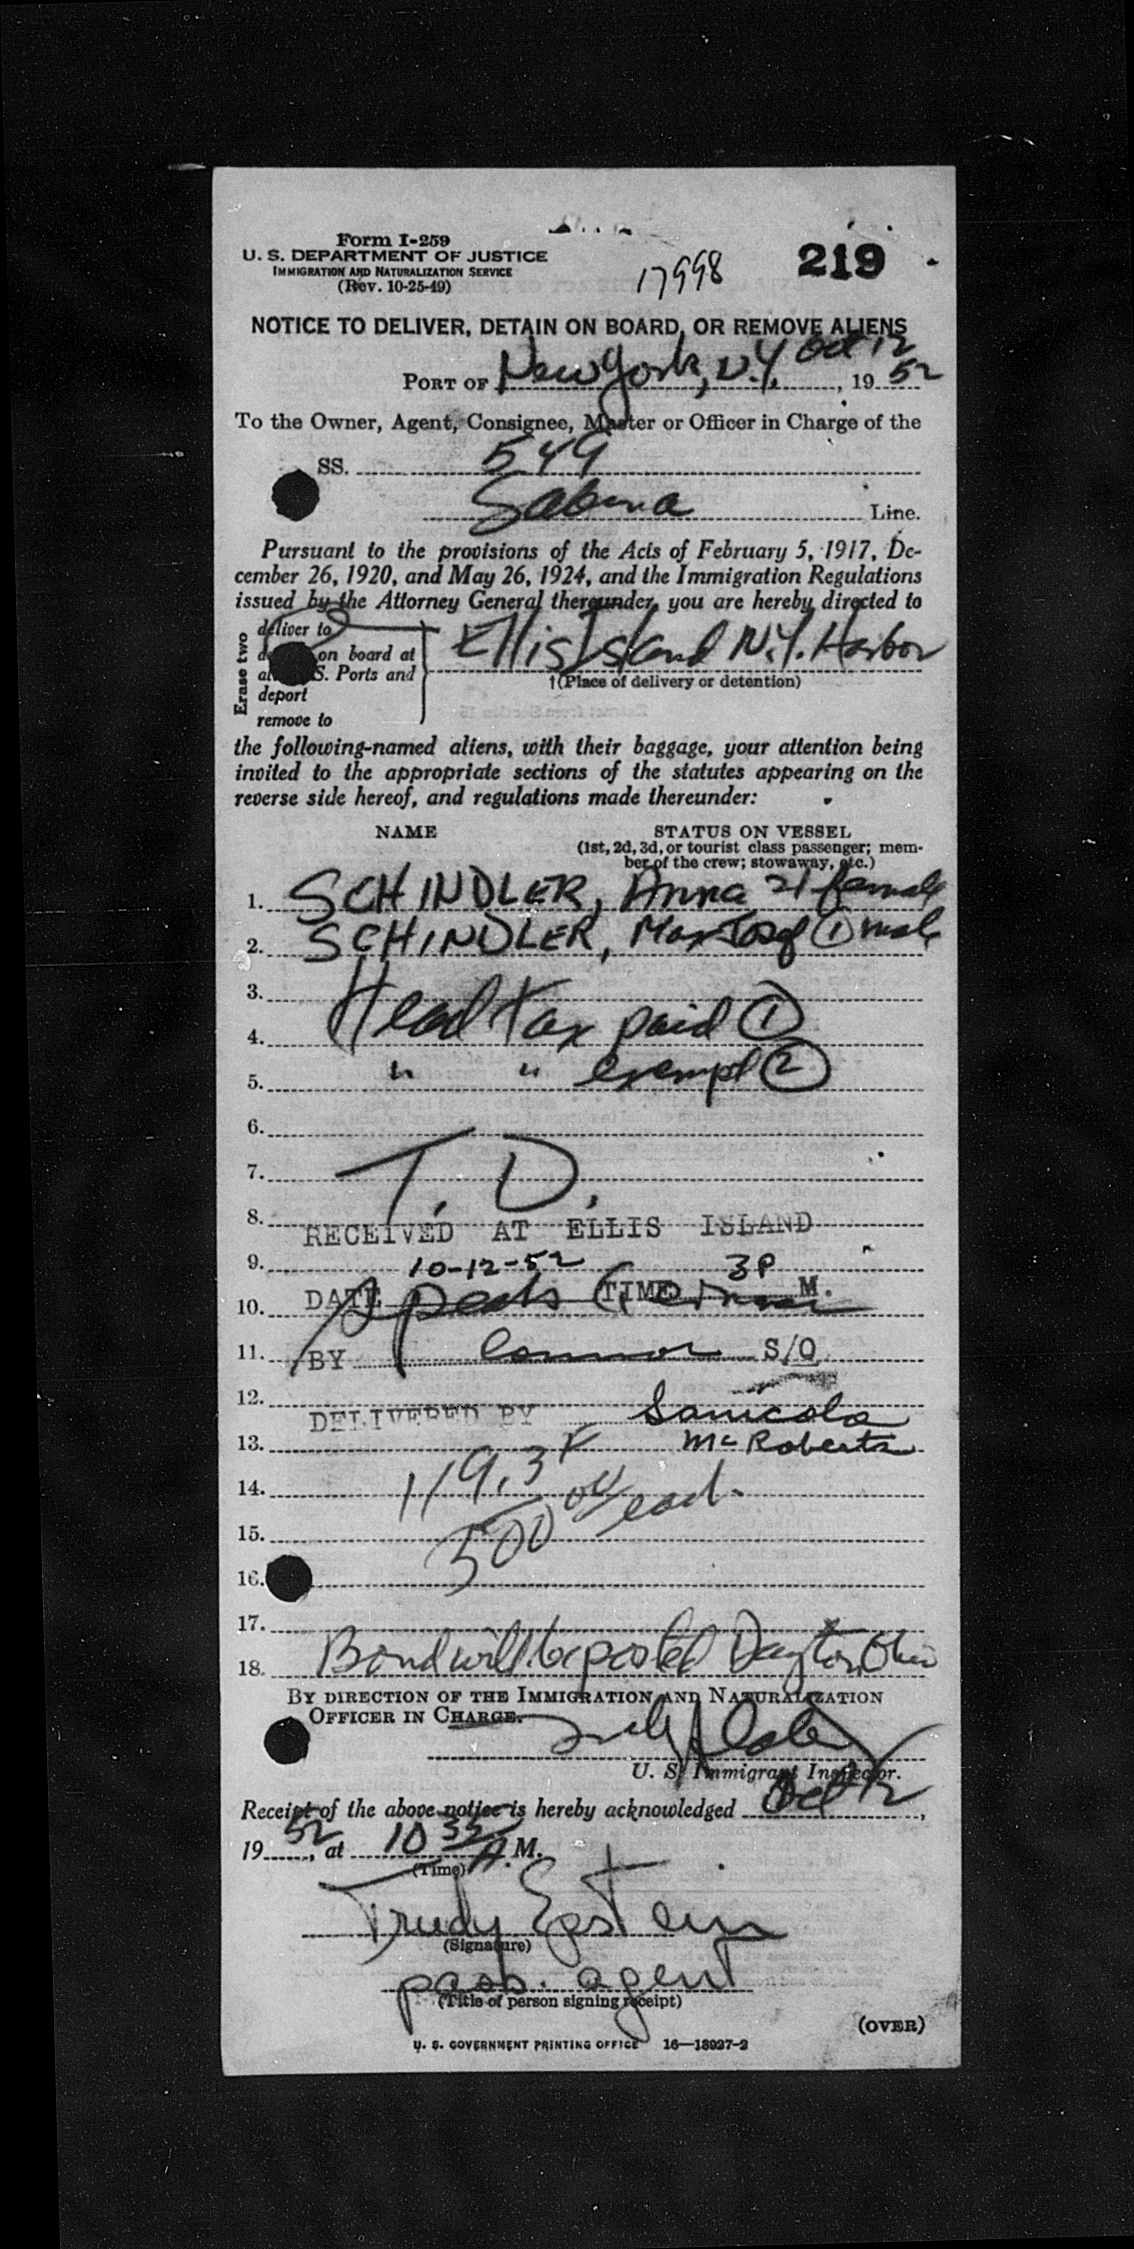 Form I-259
U. S. DEPARTMENT OF JUSTICE
IMMIGRATION AND NATURALIZATION SERVICE
(Rev. 10-25-49)
17998
219
NOTICE TO DELIVER, DETAIN ON BOARD, OR REMOVE ALIENS
PORT OF New York, N.Y. Oct 12, 1952
To the Owner, Agent, Consignee, Master or Officer in Charge of the
SS. 549
Sabena Line.
Pursuant to the provisions of the Acts of February 5, 1917, De-
cember 26, 1920, and May 26, 1924, and the Immigration Regulations
issued by the Attorney General thereunder, you are hereby directed to
Erase two
deliver to
on board at
S. Ports and
deport
remove to
Ellis Island N.Y. Harbor
†(Place of delivery or detention)
the following-named aliens, with their baggage, your attention being
invited to the appropriate sections of the statutes appearing on the
reverse side hereof, and regulations made thereunder:
NAME
STATUS ON VESSEL
(1st, 2d, 3d, or tourist class passenger; mem-
ber of the crew; stowaway, etc.)
1. SCHINDLER, Anna 21 female
2. SCHINDLER, Max Josef ① male
3.
4. Head tax paid ①
5. " " exempt ②
6.
7. T. D.
8. RECEIVED AT ELLIS ISLAND
9. 10-12-52 3P
10. DATE TIME M.
Speaks German
11. BY Connor S/O
12. DELIVERED BY Sanicola
13. McRoberts
14. 119.3
15. 500 00/each.
16.
17.
18. Bond will be posted Dayton Ohio
BY DIRECTION OF THE IMMIGRATION AND NATURALIZATION
OFFICER IN CHARGE.
U. S. Immigrant Inspector.
Receipt of the above notice is hereby acknowledged Oct 12,
1952, at 10 35 A.M.
(Time)
Trudy Epstein
(Signature)
pass. agent
(Title of person signing receipt)
(OVER)
U. S. GOVERNMENT PRINTING OFFICE 16—18027-2